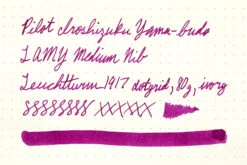 Pilot Iroshizuku Yama-budo
LAMY Medium Nib
Leuchtturm1917 dotgrid, 80g, ivory